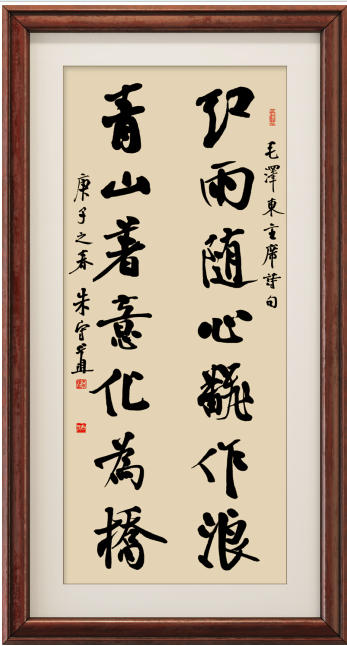 毛澤東主席詩句
红雨随心翻作浪
青山著意化為橋
庚子之春 朱守道